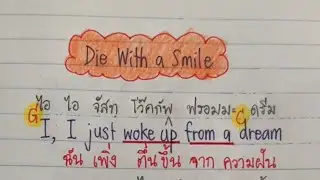 Die With a Smile
ไอ ไอ จัสทฺ โว๊คกัพ ฟรอมมะ ดรีม
G G
I, I just woke up from a dream
ฉัน เพิ่ง ตื่นขึ้น จาก ความฝัน